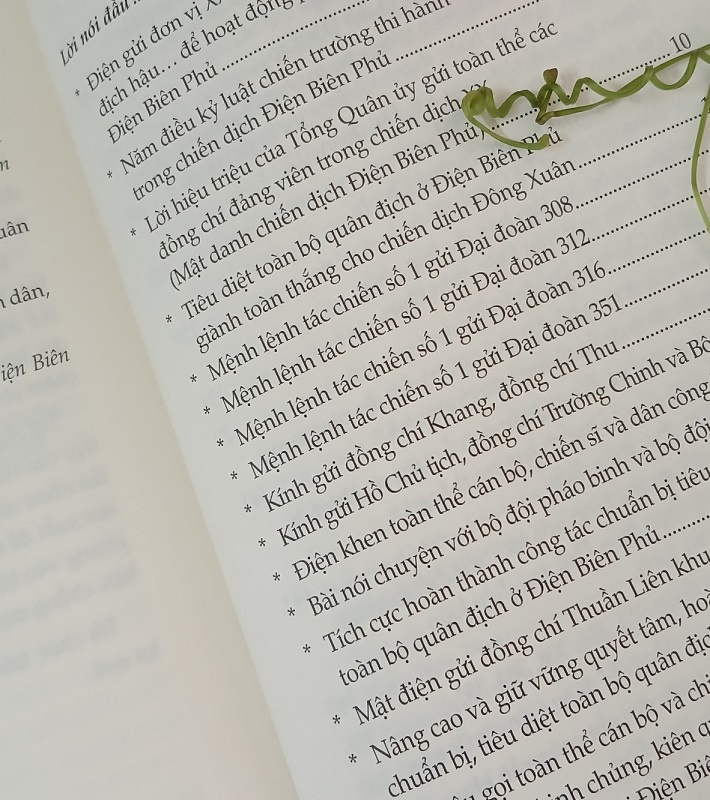 n
uân
dân,
iện Biên
Lời nói đầu
* Điện gửi đơn vị
địch hậu... để hoạt động
Điện Biên Phủ
* Năm điều kỷ luật chiến trường thi hành
trong chiến dịch Điện Biên Phủ
* Lời hiệu triệu của Tổng Quân ủy gửi toàn thể các
đồng chí đảng viên trong chiến dịch
(Mật danh chiến dịch Điện Biên Phủ) 10
* Tiêu diệt toàn bộ quân địch ở Điện Biên Phủ
giành toàn thắng cho chiến dịch Đông Xuân
* Mệnh lệnh tác chiến số 1 gửi Đại đoàn 308
* Mệnh lệnh tác chiến số 1 gửi Đại đoàn 312
* Mệnh lệnh tác chiến số 1 gửi Đại đoàn 316
* Mệnh lệnh tác chiến số 1 gửi Đại đoàn 351
* Kính gửi đồng chí Khang, đồng chí Thu
* Kính gửi Hồ Chủ tịch, đồng chí Trường Chinh và Bộ
* Điện khen toàn thể cán bộ, chiến sĩ và dân công
* Bài nói chuyện với bộ đội pháo binh và bộ đội
* Tích cực hoàn thành công tác chuẩn bị tiêu
toàn bộ quân địch ở Điện Biên Phủ
* Mật điện gửi đồng chí Thuần Liên khu
* Nâng cao và giữ vững quyết tâm,
chuẩn bị, tiêu diệt toàn bộ quân địch
gọi toàn thể cán bộ và
chủng, kiên
Điện